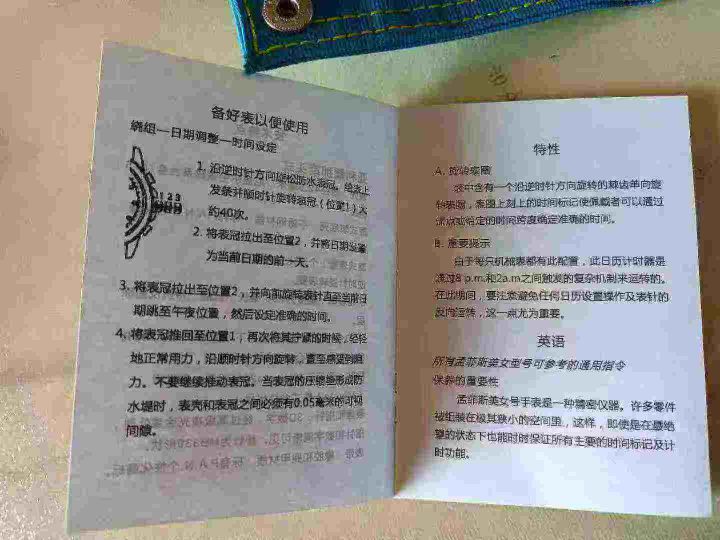 备好表以便使用
绕组—日期调整—时间设定
1 2 3
1. 沿逆时针方向旋松防水表冠。给表上
发条并顺时针旋转表冠（位置1）大
约40次。
2. 将表冠拉出至位置2，并将日期设置
为当前日期的前一天。
3. 将表冠拉出至位置2，并向前旋转表针直至当前日
期跳至午夜位置，然后设定准确的时间。
4. 将表冠推回至位置1，再次将其拧紧的时候，轻轻
地正常用力，沿顺时针方向旋转，直至感受到阻
力。不要继续推动表冠。当表冠的压缩垫形成防
水堤时，表壳和表冠之间必须有0.05毫米的可视
间隙。
特性
A. 旋转表圈
表中含有一个沿逆时针方向旋转的棘齿单向旋
转表圈，表圈上刻上的时间标记使佩戴者可以通过
零点或给定的时间跨度确定准确的时间。
B. 重要提示
由于每只机械表都有此配置，此日历计时器是
通过8 p.m.和2a.m.之间触发的复杂机制来运转的。
在此期间，要注意避免任何日历设置操作及表针的
反向运转，这一点尤为重要。
英语
所有孟菲斯美女型号可参考的通用指令
保养的重要性
孟菲斯美女号手表是一种精密仪器。许多零件
被组装在极其狭小的空间里，这样，即使是在最绝
望的状态下也能时时保证所有主要的时间标记及计
时功能。